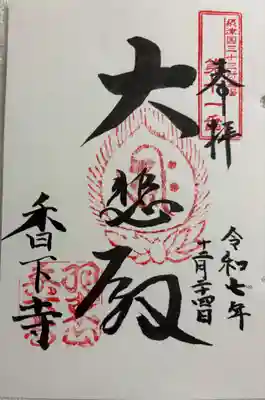 摂津国三十三
奉拝
大悲殿
令和七年
十二月二十四日
香下寺